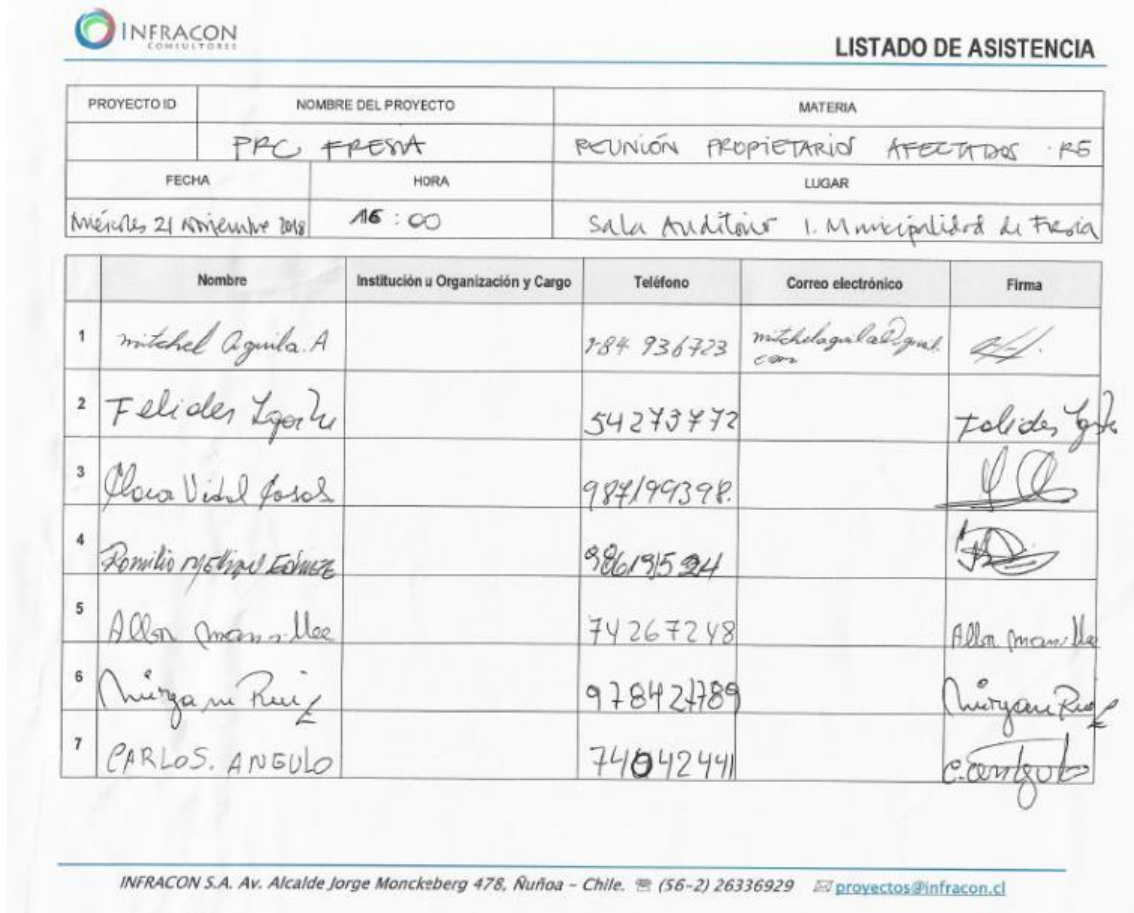 INFRACON
CONSULTORES
LISTADO DE ASISTENCIA
PROYECTO ID NOMBRE DEL PROYECTO MATERIA
PRC FRESIA REUNIÓN PROPIETARIOS AFECTADOS RE
FECHA HORA LUGAR
Miércoles 21 Noviembre 2018 16:00 Sala Auditorio I. Municipalidad de Fresia
Nombre Institución u Organización y Cargo Teléfono Correo electrónico Firma
1 mitchel Aguila. A 936723
2 Felides 54273772 Felides
3 Vidal 987199398.
4 Romilio
5 Mansilla 74267248 Mansilla
6 Miryam Ruiz 978421789 Miryam Ruiz
7 CARLOS. ANGULO 74042441 C. Angulo
INFRACON S.A. Av. Alcalde Jorge Monckeberg 478, Ñuñoa – Chile. (56-2) 26336929 proyectos@infracon.cl